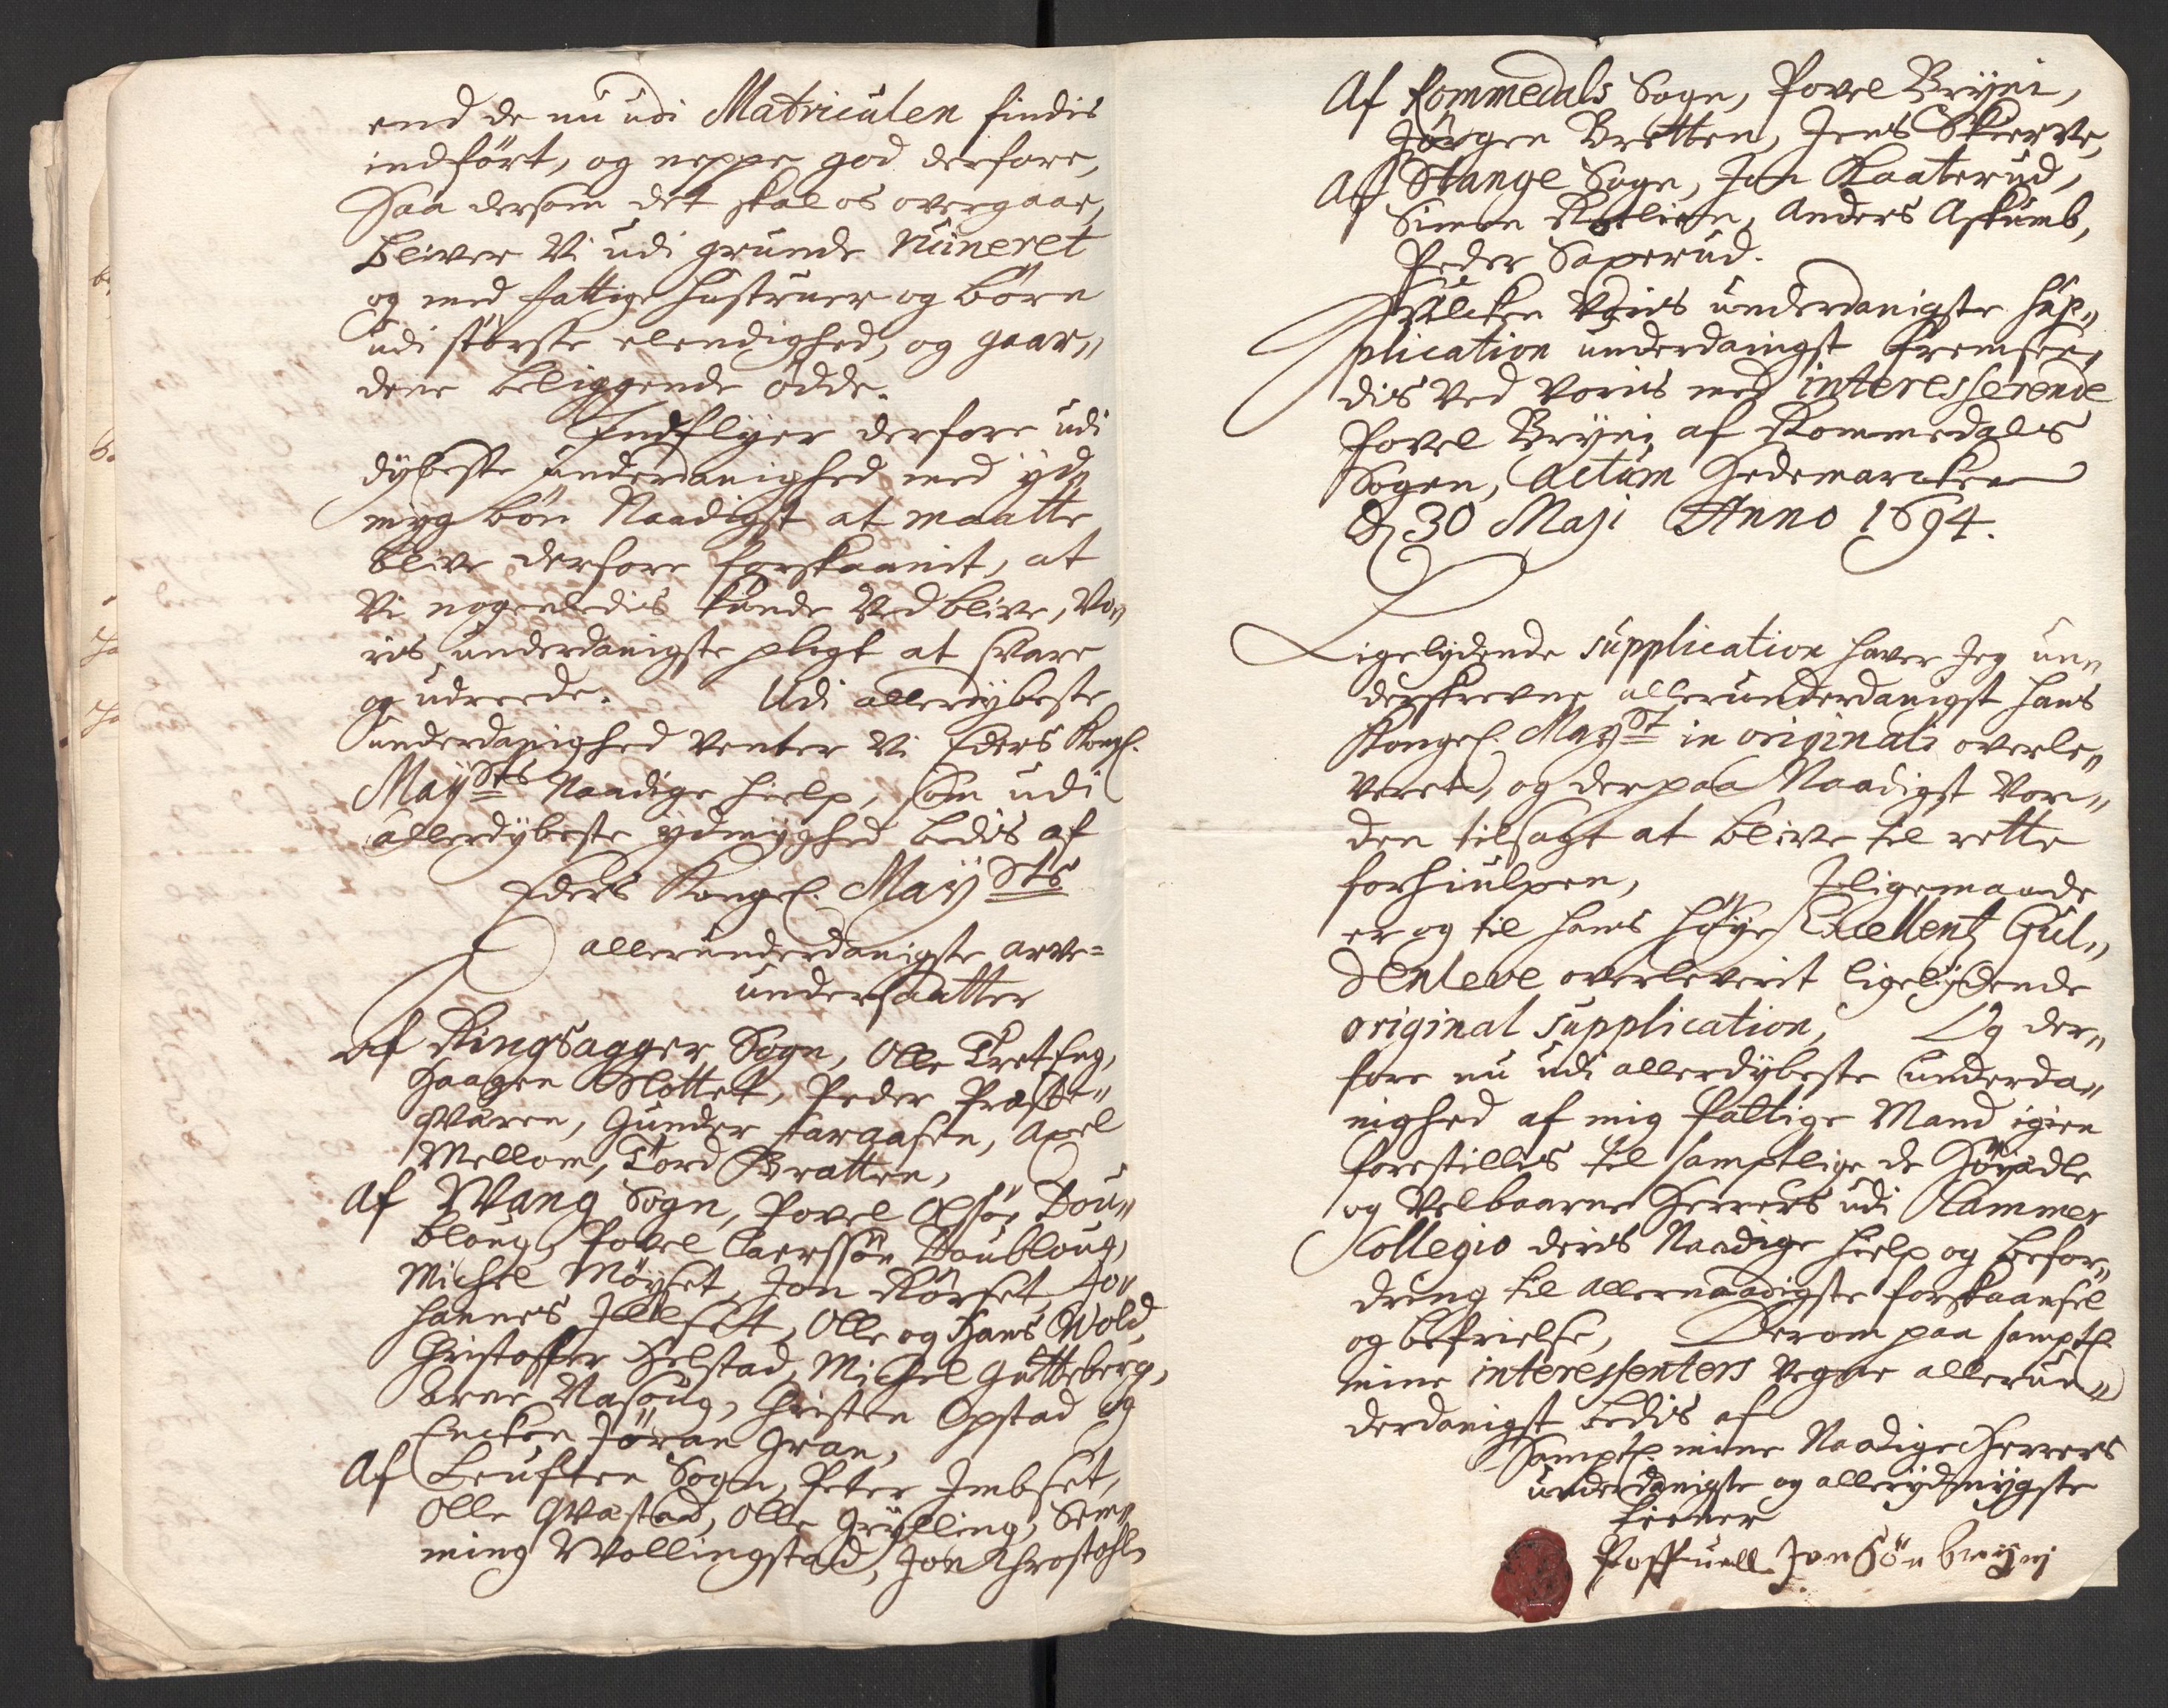 end de nu udi Matriculen findis
indført, og neppe god derfore,
Saa dersom det skal os overgaae,
bliver Vi udi grunde Ruineret
og med fattige hustruer og børn
udi største elendighed, og gaar„
dene beliggende ødde.
Indflyer derfore udi
dybeste underdanighed med ÿd„
myg bøn Naadigst at maatte
blive derfore forskaanit, at
Vi nogenledis kunde Ved blive, Vo„
ris underdanigste pligt at svare
og udreede. Udi allerdybeste
underdanighed venter Vi Eders Kongl.
Maÿsts Naadige hielp, som udi
allerdybeste ydmyghed bedis af
Eders Kongel. Maÿsts
allerunderdanigste arve=
undersaatter
Af Ringsagger Sogn, Olle Tret Eng,
Haagen Slottet, Peder Præste„
qværen, Gunder Faraasen, Axel
Mellom, Tord Bratten,
Af Wang Sogn, Povel Olsøn Dou„
bloug, Povel Laerssøn Doubloug,
Michel Møyset, Jon Rørset, Jo„
hannes Illset, Olle og Hans Wold,
Christoffer Selstad, Michel Gutteberg,
Arne Nasoug, Christen Opstad og
Encken Jøran Gran,
Af Leuften Sogn, Peter Imbset,
Olle Qvæstad, Olle Grÿtting, Sem„
ming Wollingstad, Jon
Af Rommedals Sogn, Povel Bryni,
Jørgen Bretten, Jens Skierve,
Af Stange Sogn, Jon Kaaterud,
Simen Rotlien, Anders Askumb,
Peder Saxerud.
Hvilcken Voris underdanigste Sup„
plication underdanigst fremsen„
dis Ved Voris med interesserende
Povel Bryni af Rommedals
Sogen, Actum Hedemarcken
d 30 Maji Anno 1694.
Ligelydende supplication haver Jeg un„
derskrevne allerunderdanigst hans
Kongel. Maÿst in originali overle„
veret, og derpaa Naadigst Vor„
den tilsagt at blive til rette
forhiulpen, Iligemaade
er og til hans høye Excellentz Gül„
denleve overleverit ligelydende
original supplication, Og der„
fore nu udi allerdybeste underda„
nighed af mig fattige Mand igien
forestillis til samptlige de Høyædle
og Velbaarne Herrers udi Kammer
Collegio deris Naadige hielp og befor„
dring til allernaadigste forskaansel
og befrielse, Derom paa samptl.
mine interessenters vegne allerun„
derdanigst bedis af
Samptl. mine Naadige Herrers
underdanigste og allerydmygste
tiener
Poffuell Jonsøn brÿnj